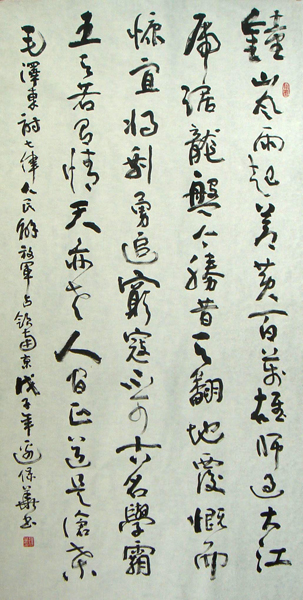 鐘山風雨起蒼黃百萬雄師過大江
虎踞龍盤今勝昔天翻地覆慨而
慷宜將剩勇追窮寇不可沽名學霸
王天若有情天亦老人間正道是滄桑
毛澤東詩七律人民解放軍占領南京戊子年保華書